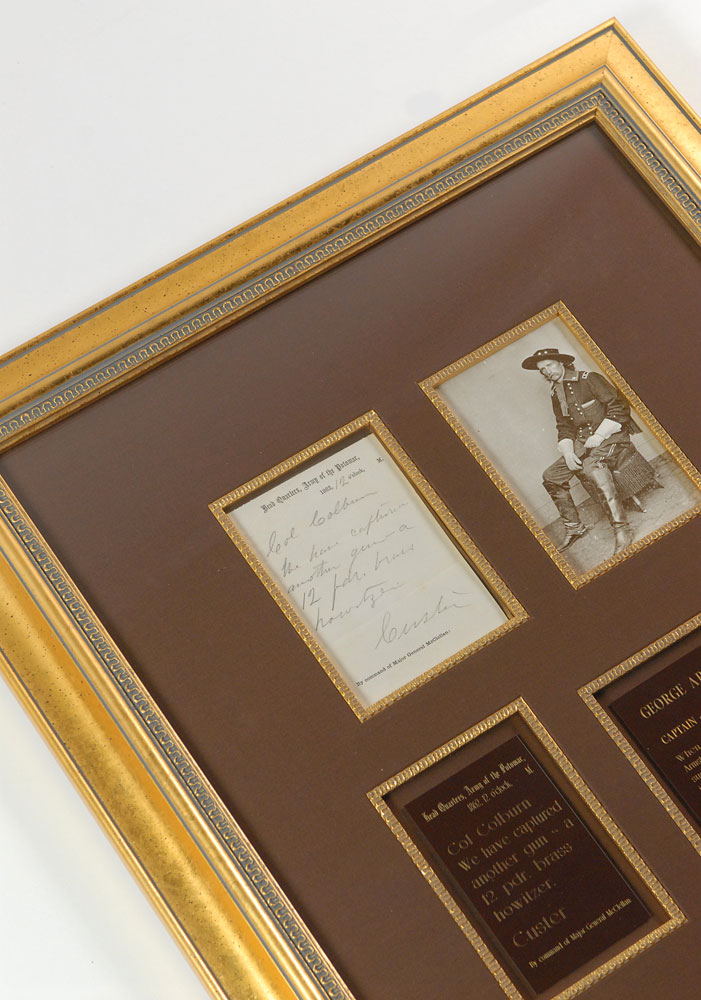 Head Quarters, Army of the Potomac,
1862, 12 o'clock, M.
Col Colburn
We have captured
another gun – a
12 pdr. brass
howitzer
Custer
By command of Major General McClellan:
Head Quarters, Army of the Potomac,
1862, 12 o'clock, M.
Col Colburn
We have captured
another gun ~ a
12 pdr. brass
howitzer.
Custer
By command of Major General McClellan
GEORGE AR
CAPTAIN
When
Ame